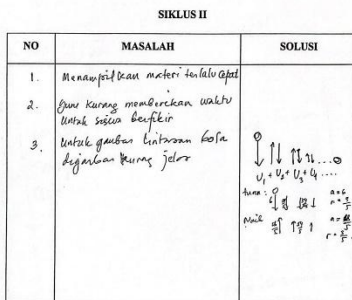 SIKLUS II
NO MASALAH SOLUSI
1. Menampilkan materi terlalu cepat
2. guru kurang memberikan waktu
untuk siswa berfikir
3. untuk gambar lintasan bola
digambar kurang jelas
U₁ + U₂ + U₃ + U₄ ....
turun :
a = 6
Naik